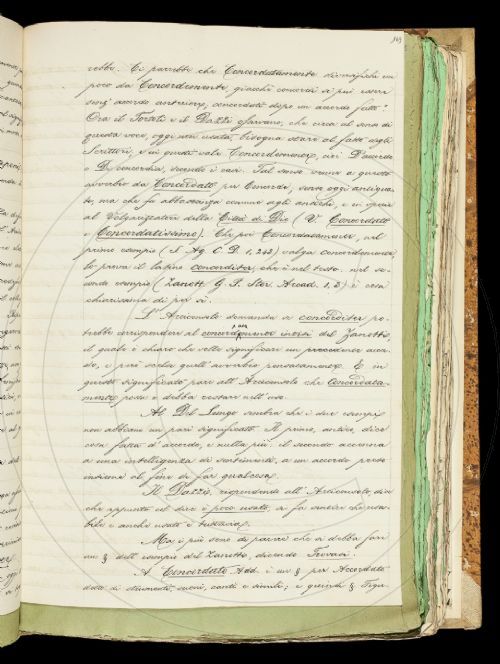 169
rebbe. Ci parrebbe che Concordatamente diversifichi un
poco da Concordemente, giacchè concordi si può essere
senz' accordo anteriore, concordati dopo un accordo fatto.
Ora il Tortoli e il Dazzi osservano, che circa al senso di
questa voce, oggi non usata, bisogna stare al fatto degli
Scrittori, e in questi vale Concordemente, cioè D'accordo
o Di concordia, secondo i casi. Tal senso venne a questo
avverbio da Concordato per Concorde, senso oggi antiqua-
to, ma che fu abbastanza comune agli antichi, e in specie
al Volgarizzatore della Città di Dio (V. Concordato
e Concordatissimo). Che poi Concordatamente, nel
primo esempio (S. Ag. C. D. 1, 243) valga concordemente,
lo prova il latino concorditer, che è nel testo. nel se-
condo esempio (Zanott. G. P. Stor. Accad. 1, 3) è cosa
chiarissima di per sè.
L' Arciconsolo domanda se concorditer po-
trebbe corrispondere al concordemente intesi del Zanotti,
il quale è chiaro che volle significare un precedente accor-
do, e però scelse quell' avverbio pensatamente. E in
questo significato pare all' Arciconsolo che Concordata-
mente possa e debba restare nell' uso.
Al Del Lungo sembra che i due esempi
non abbiano un pari significato. Il primo, antico, dice
cosa fatta d' accordo, e nulla più: il secondo accenna
a una intelligenza di sentimenti, a un accordo preso
insieme al fine di far qualcosa.
Il Dazzi, rispondendo all' Arciconsolo, dice
che appunto il dire è poco usata, fa sentire che usa-
bile e anche usata è tuttavia.
Ma i più sono di parere che si debba fare
un § dell' esempio del Zanotti, dicendo Trovasi.
A Concordato Add. è un § per Accordato
detto di strumenti, suoni, canti e simili; e quindi § Figu-